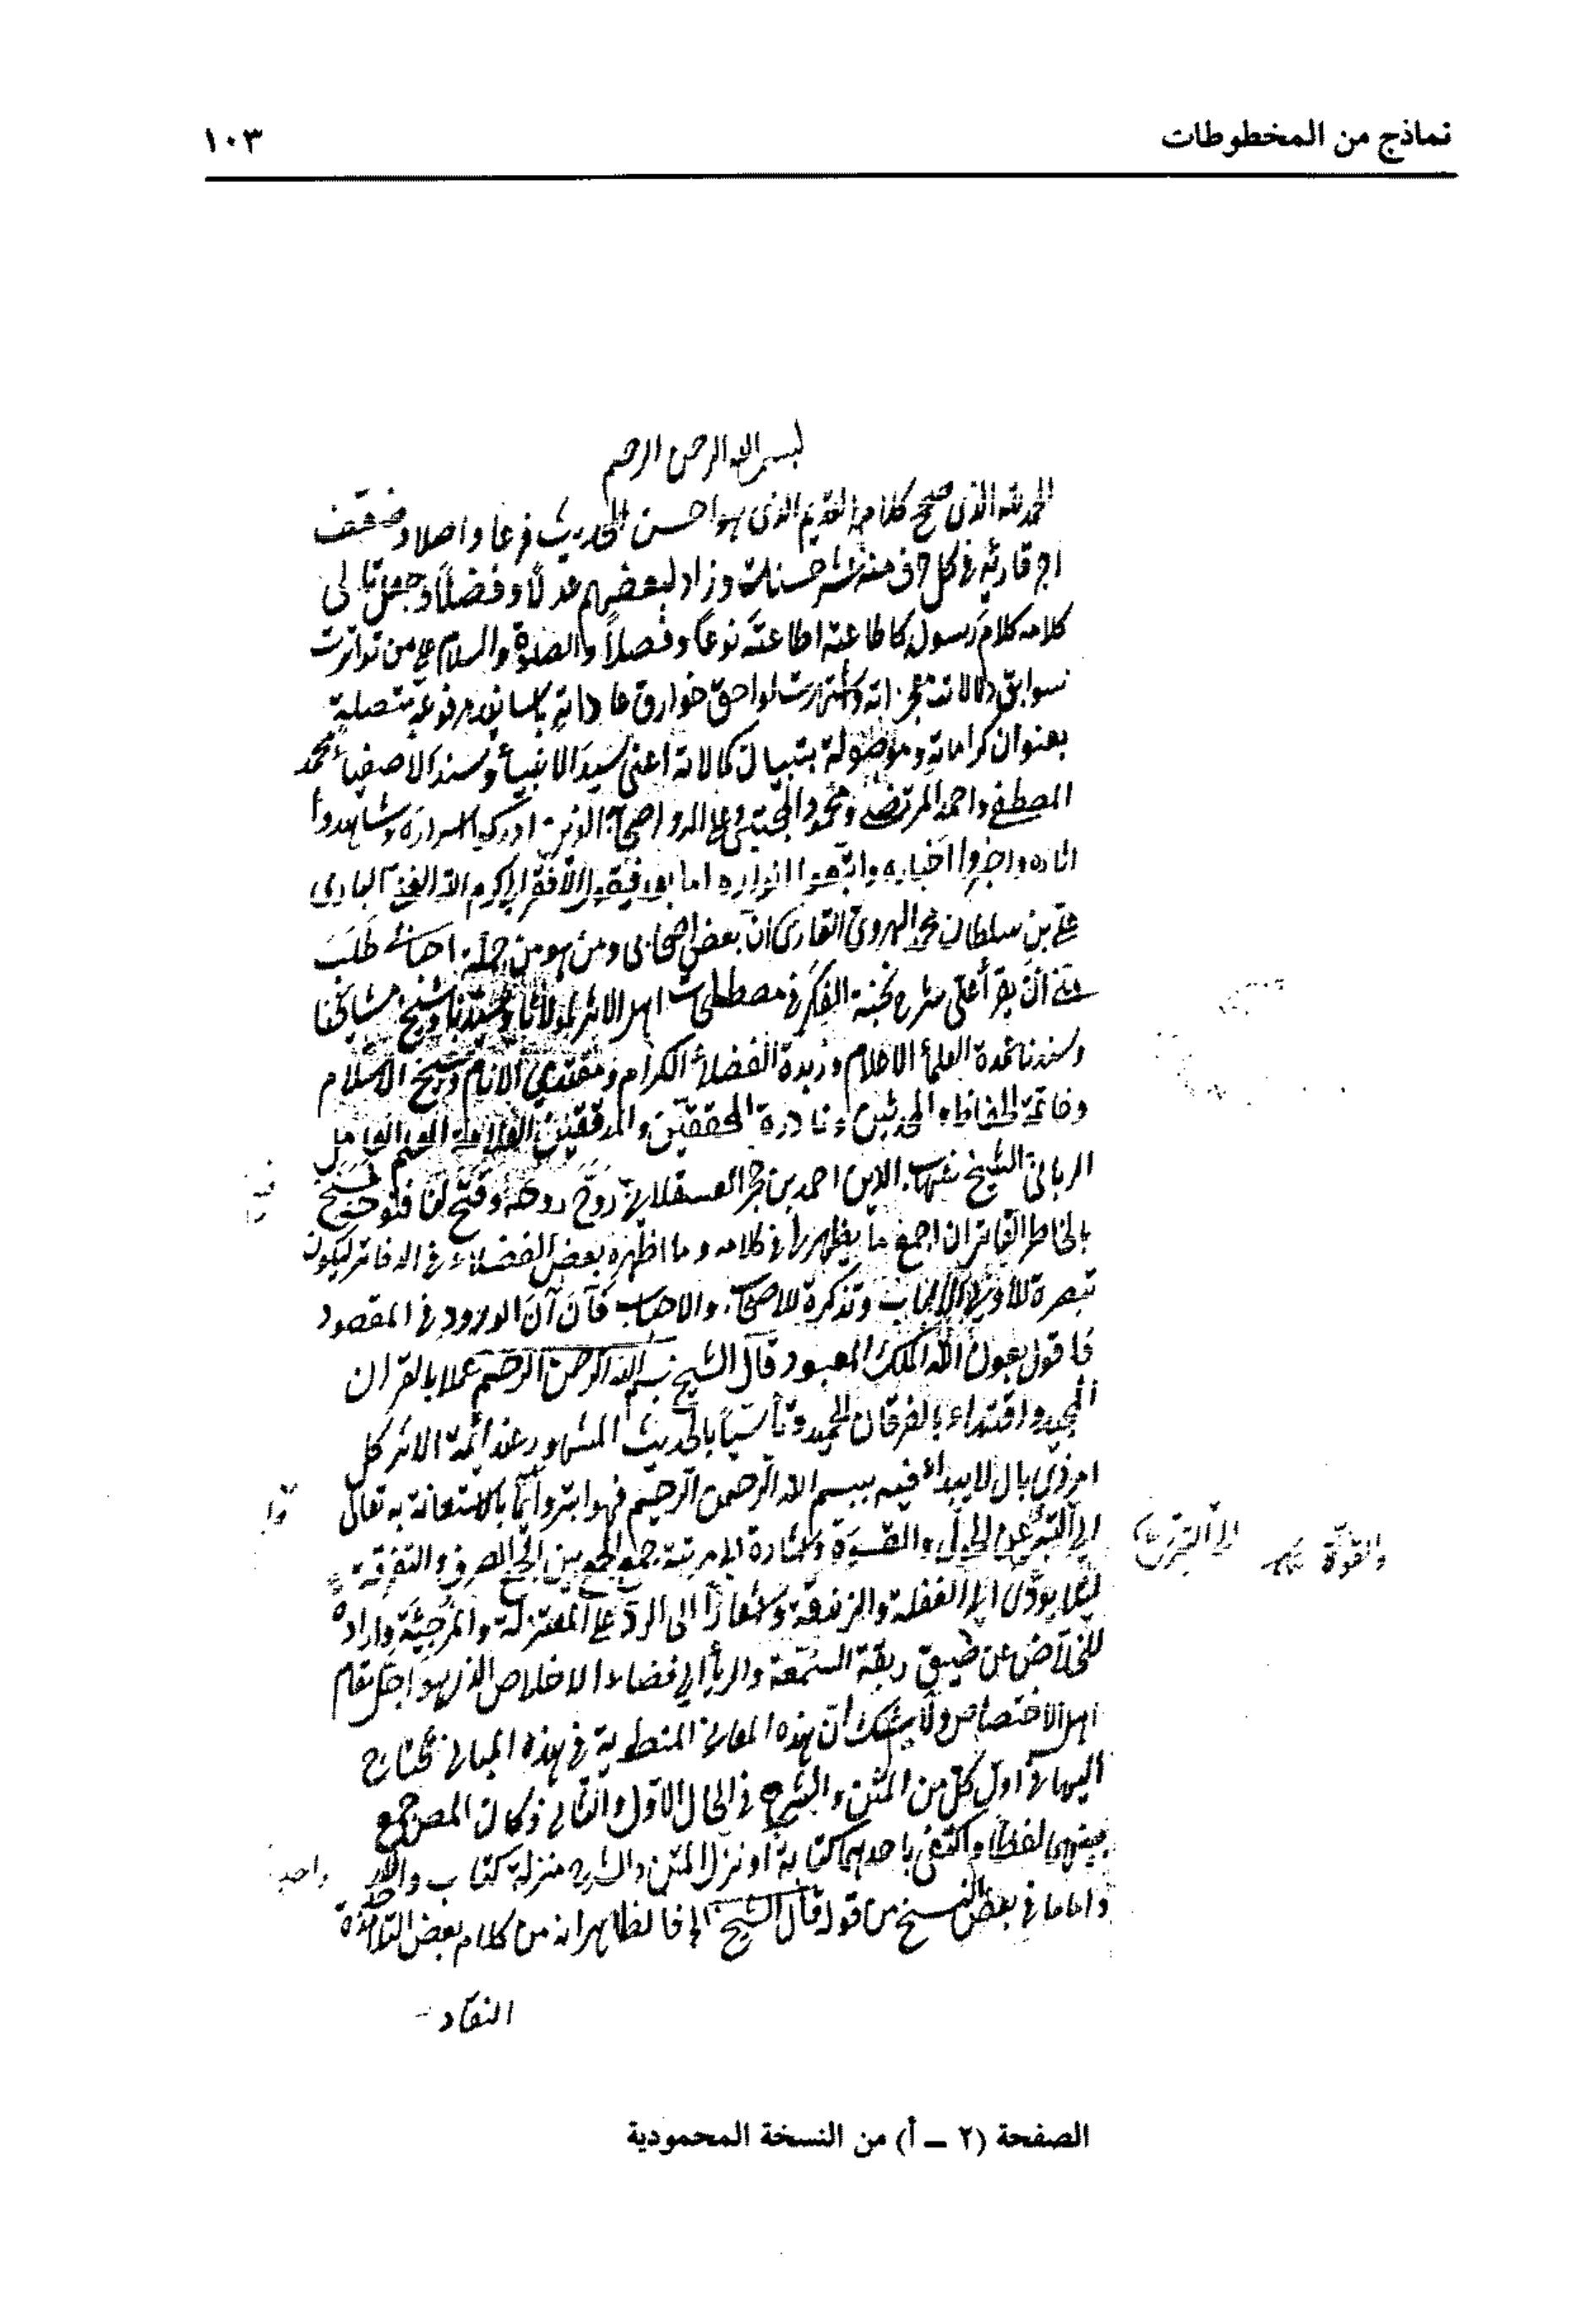 نماذج من المخطوطات
١٠٣
بسم الله الرحمن الرحيم
الحمد لله الذي صحح كلامه القديم الذي هو احسن الحديث فرعا واصلا وضعّف
اجر قارئه في كل حرف منه عشر حسنات وزاد لبعضهم عدلاً وفضلاً وجعل تالي
كلامه كلام رسوله كاطاعته اطاعته نوعاً وفصلاً والصلوة والسلام على من تواترت
سوابق دلالات معجزاته واشتهرت لواحق خوارق عاداته باسانيد مرفوعة متصلة
بعنوان كراماته وموصولة بتبيان كمالاته اعني سيد الانبياء وسند الاصفياء محمد
المصطفى واحمد المرتضى ومحمود المجتبى وعلى اله واصحابه الذين ادركوا اسراره وشاهدوا
اثاره واخبروا اخباره واتبعوا انواره اما بعد فيقول الافقر الى كرم الله الغني الباري
علي بن سلطان محمد الهروي القاري ان بعض اصحابي ومن هو من جملة احبابي طلب
مني ان يقرأ علي شرح نخبة الفكر في مصطلحات اهل الاثر لمولانا وسيدنا وشيخ مشايخنا
وسندنا عمدة العلماء الاعلام وزبدة الفضلاء الكرام ومقتدي الانام وشيخ الاسلام
وخاتمة الحفاظ والمحدثين ونادرة المحققين والمدققين العلامة العالم العامل
الرباني الشيخ شهاب الدين احمد بن حجر العسقلاني روّح روحه وفتح لنا فتوحه فسنح
بالخاطر الفاتر ان اجمع ما يظهر لي في كلامه وما اظهره بعض الفضلاء في الدفاتر ليكون
تبصرة لأولي الالباب وتذكرة للاصحاب والاحباب فآن آن الورود في المقصود
فاقول بعون الله الملك المعبود قال الشيخ بسم الله الرحمن الرحيم عملا بالقران
المجيد واقتداء بالفرقان الحميد وتأسّياً بالحديث المشهور عند ائمة الاثر كل
امر ذي بال لا يبداء فيه ببسم الله الرحمن الرحيم فهو ابتر وايماً بالاستعانة به تعالى
الى التبرئ عن الحول والقوة واشارة الى مرتبة جمع الجمع بين الجمع الصرف والتفرقة
لئلا يؤدي الى الغفلة والزندقة واشعاراً الى الرد على المعتزلة والمرجئة وارادة
للخلاص عن ضيق ربقة السمعة والرياء الى فضاء الاخلاص الذي هو اجل مقام
اهل الاختصاص ولا شك ان هذه المعاني المنطوية في هذه المباني محتاج
اليها في اول كل من المتن والشرح في الحال الاول والثاني فكان المصـ جمع
بينهما لفظا واكتفى باحدهما كتابة او نزل المتن والشرح منزلة كتاب واحد
واما ما في بعض النسخ من قوله قال الشيخ الخ فالظاهر انه من كلام بعض التلامذة
واحد
والقوة
النقاد
الصفحة (٢ – أ) من النسخة المحمودية